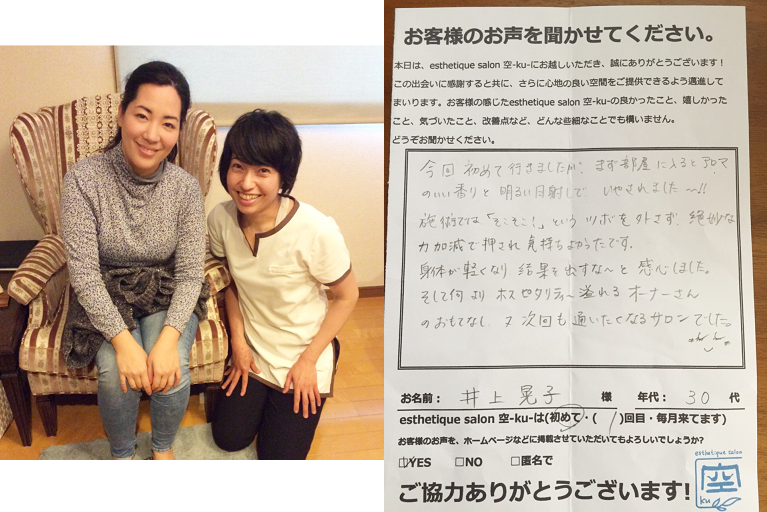 お客様のお声を聞かせてください。
本日は、esthetique salon 空-ku-にお越しいただき、誠にありがとうございます！
この出会いに感謝すると共に、さらに心地の良い空間をご提供できるよう邁進して
まいります。お客様の感じたesthetique salon 空-ku-の良かったこと、嬉しかった
こと、気づいたこと、改善点など、どんな些細なことでも構いません。
どうぞお聞かせください。
今回初めて行きましたが、まず部屋に入るとアロマ
のいい香りと明るい日射しで いやされました〜!!
施術では「そこそこ！」というツボを外さず、絶妙な
力加減で押され気持ちよかったです。
身体が軽くなり結果を出すな〜と感心しました。
そして何よりホスピタリティー溢れるオーナーさん
のおもてなし、又次回も通いたくなるサロンでした。
お名前： 井上晃子 様 年代： 30 代
esthetique salon 空-ku-は(初めて・( )回目・毎月来てます)
お客様のお声を、ホームページなどに掲載させていただいてもよろしいでしょうか?
☑YES □NO □匿名で
ご協力ありがとうございます!
esthetique salon
空
ku